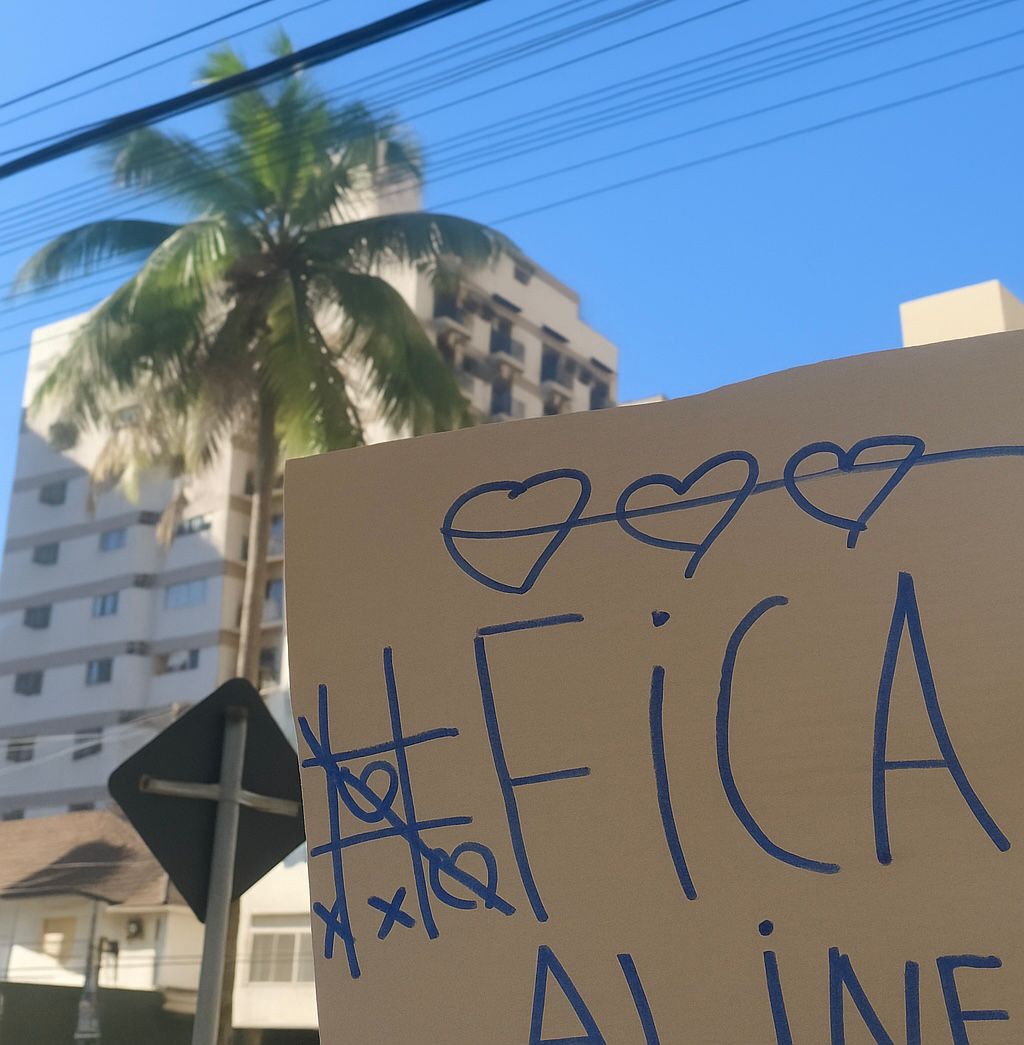 FiCA
ALiNE